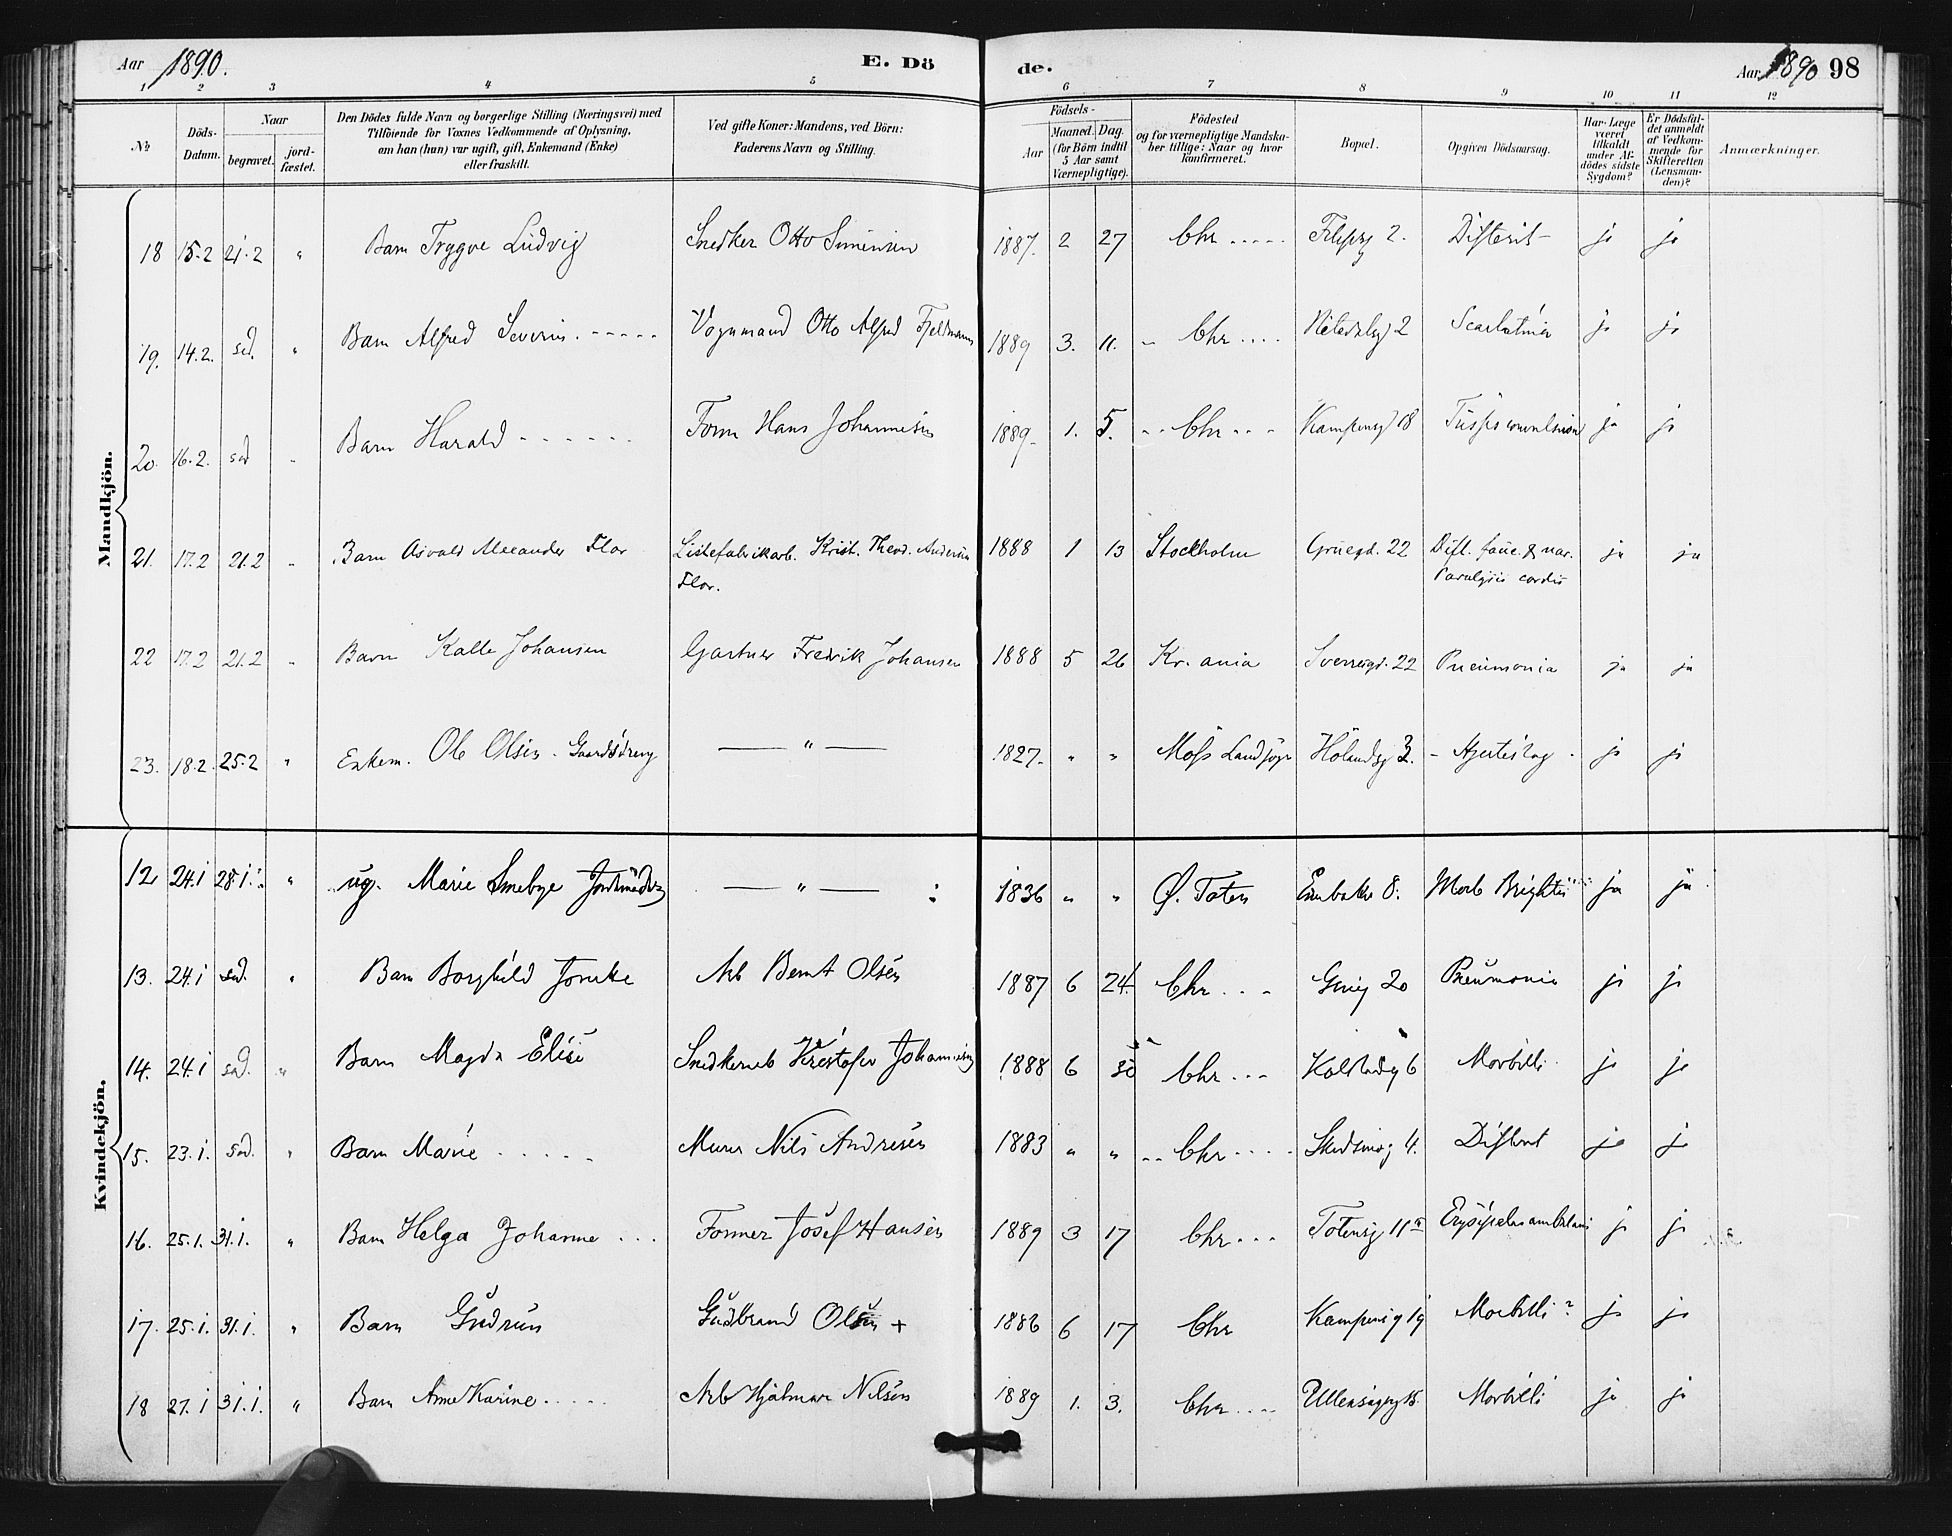 Aar 1890. E. Dö de. Aar 1890 98
1 2 3 4 5 6 7 8 9 10 11 12
No
Döds-Datum.
Naar
begravet.
jord-fæstet.
Den Dödes fulde Navn og borgerlige Stilling (Næringsvei) med
Tilföiende for Voxnes Vedkommende af Oplysning,
om han (hun) var ugift, gift, Enkemand (Enke)
eller fraskilt.
Ved gifte Koner: Mandens, ved Börn:
Faderens Navn og Stilling.
Födsels-
Aar
Maaned. Dag.
(for Börn indtil
5 Aar samt
Værnepligtige).
Födested
og for værnepligtige Mandska-
ber tillige: Naar og hvor
konfirmeret.
Bopæl.
Opgiven Dödsaarsag.
Har Læge
været
tilkaldt
under Af-
dödes sidste
Sygdom?
Er Dödsfal-
det anmeldt
af Vedkom-
mende for
Skifteretten
(Lensman-
den)?
Anmærkninger.
Mandkjön.
18 15.2 21.2 " Barn Trygve Ludvig Snedker Otto Simensen 1887. 2 27 Chr..... 2. Difterit- ja ja
19. 14.2. sad. " Barn Alfred Severin.----- Vognmand Otto Alfred Fjeldmann 1889 3. 11. - Chr.... 2 Scarlatina ja ja
20. 16.2. sad " Barn Harald ------ Form Hans Johannesen 1889- 1. 5. --Chr--- Kampensg 18 Tussis convulsiva ja ja
21. 17.2 21.2 " Barn Asvald Alexander Flor Listefabrikarb. Krist. Theod. Andersen
Flor. 1888 1 13 Stockholm Gruegd. 22 Dift. fauc. & nar.
Paralysis cordis ja ja
22 17.2 21.2 " Barn Kalle Johansen Gartner Fredrik Johansen 1888 5 26 Kr.ania Sverresgd. 22 Pneumonia ja ja
23. 18.2. 25.2 " Enkem. Ole Olsen - Gaardsdreng — " — 1827- " " Moss Landsogn Hölandsg 3. - Hjerteslag - ja ja
Kvindekjön.
12 24.1 28.1. " ug. Marie Smebye Jordmoder — " — 1836 " " Ø. Toten 8. Morb Brightii ja ja
13. 24.1 sad. " Barn Borghild Arb Bernt Olsen 1887 6 24. Chr... 20 Pneumonia ja ja
14. 24.1 sad. " Barn Magda Elise Kristofer Johannesen 1888 6 30 Chr... Kolstadg 6 Morbilli ja ja
15. 23.1. sad. " Barn Marie ..... Murer Nils Andresen 1883 " " --Chr.... Skedsmog 4. Difterit ja ja
16. 25.1. 31.1. " Barn Helga Johanne ... Former Josef Hansen 1889 3 17 Chr... Totensg 11a Erysipelas ambulans ja ja
17. 25.1. 31.1. " Barn Gudrun Gudbrand Olsen + 1886 6 17 Chr Kampensg 19 Morbilli? ja ja
18 27.1 31.1. " Barn Anne Karine..... Arb Hjalmar Nilsen 1889 1. 3. Chr.... Ullensagerg 15. Morbilli ja ja